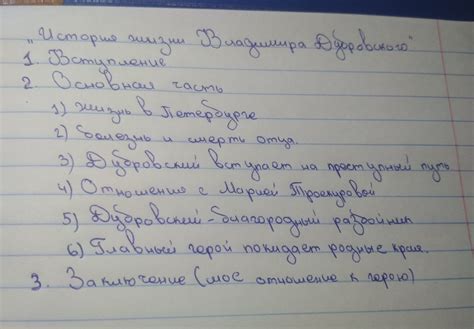 „История жизни Владимира Дубровского"
1. Вступление
2. Основная часть
1) Жизнь в Петербурге
2) Болезнь и смерть отца.
3) Дубровский вступает на преступный путь
4) Отношения с Марией Троекуровой
5) Дубровский-благородный разбойник
6) Главный герой покидает родные края.
3. Заключение (моё отношение к герою)